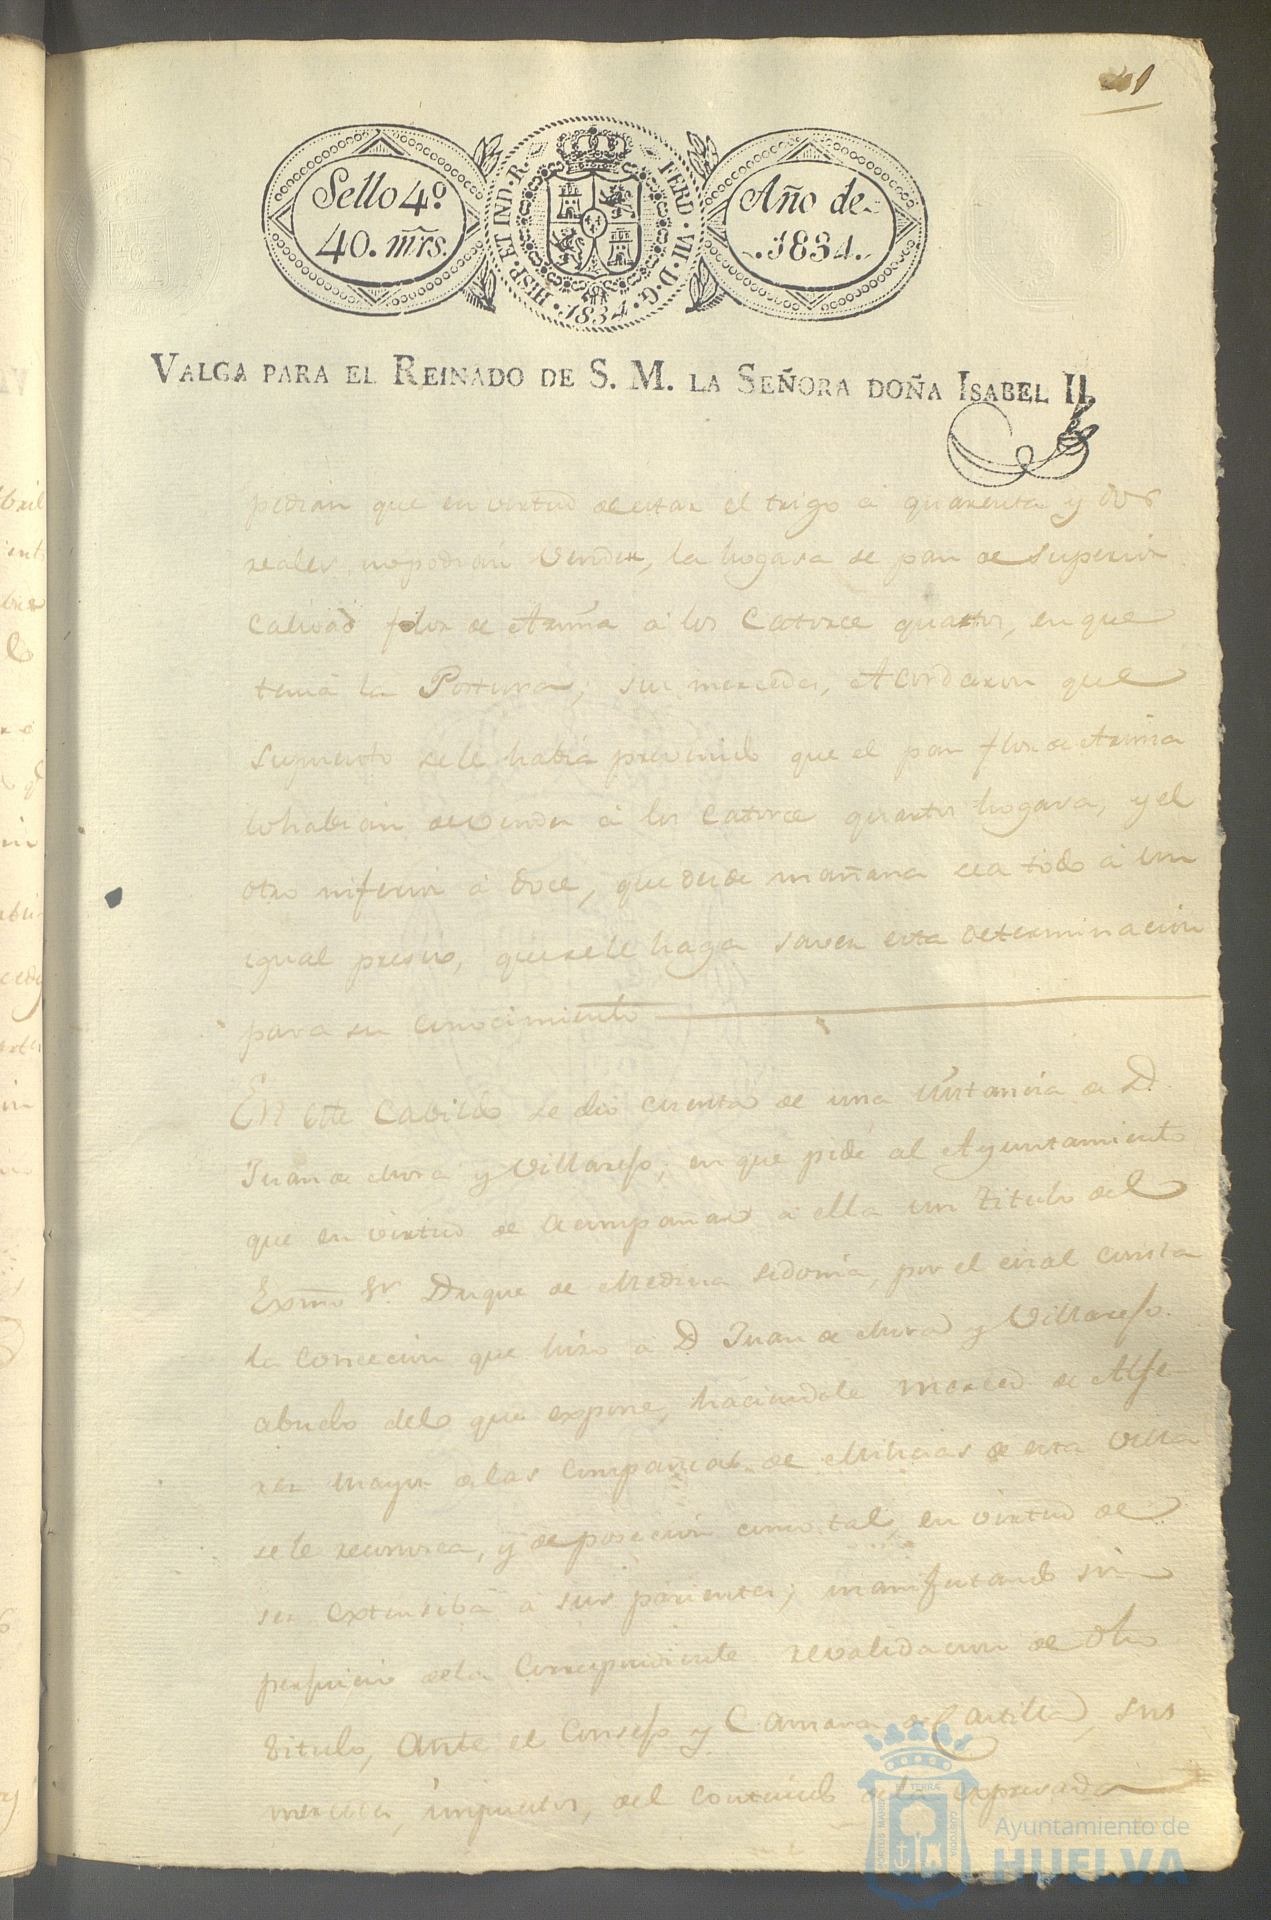 Sello 4º
40. mrs.
HISP. ET IND. R.
FERD. VII. D. G.
1834.
Año de
1834.
VALGA PARA EL REINADO DE S. M. LA SEÑORA DOÑA ISABEL II.
pedian que en virtud de estar el trigo á quarenta y dos
reales, no podian Vender, la hogasa de pan de Superiór
Calidad flor de Arina á los Catorce quartos, en que
tenia la Postura; sus mercedes, Acordaron que
supuesto sele había prevenido que el pan flor de Arina
lo habian de vender á los Catorce quartos hogasa, y el
otro inferior á doce, que desde mañana sea todo á un
igual presio, que se le haga saver esta determinación
para su conocimiento
En este Cavildo se dio cuenta de una Ynstancia de D.
Juan de Mora y Villarejo, en que pide al Ayuntamiento
que en virtud de acompañar á ella un Titulo del
Exmo Sr. Duque de Medina Sidonia, por el cual consta
la concecion que hizo a D. Juan de Mora y Villarejo
abuelo del que expone, haciendole merced de Alfe-
rez mayor de las Compañias de Milicias de esta Villa
se le reconosca, y de posecion como tal, en virtud de
ser extensiba á sus parientes; manifestando sin
perjuicio dela Correspondiente revalidacion de dho
Titulo, ante el Consejo y Camara de Castilla, sus
mercedes, impuestos, del contenido dela expresada
TERRAE
CUSTODIA
PORTUS MARIS
Ayuntamiento de
HUELVA